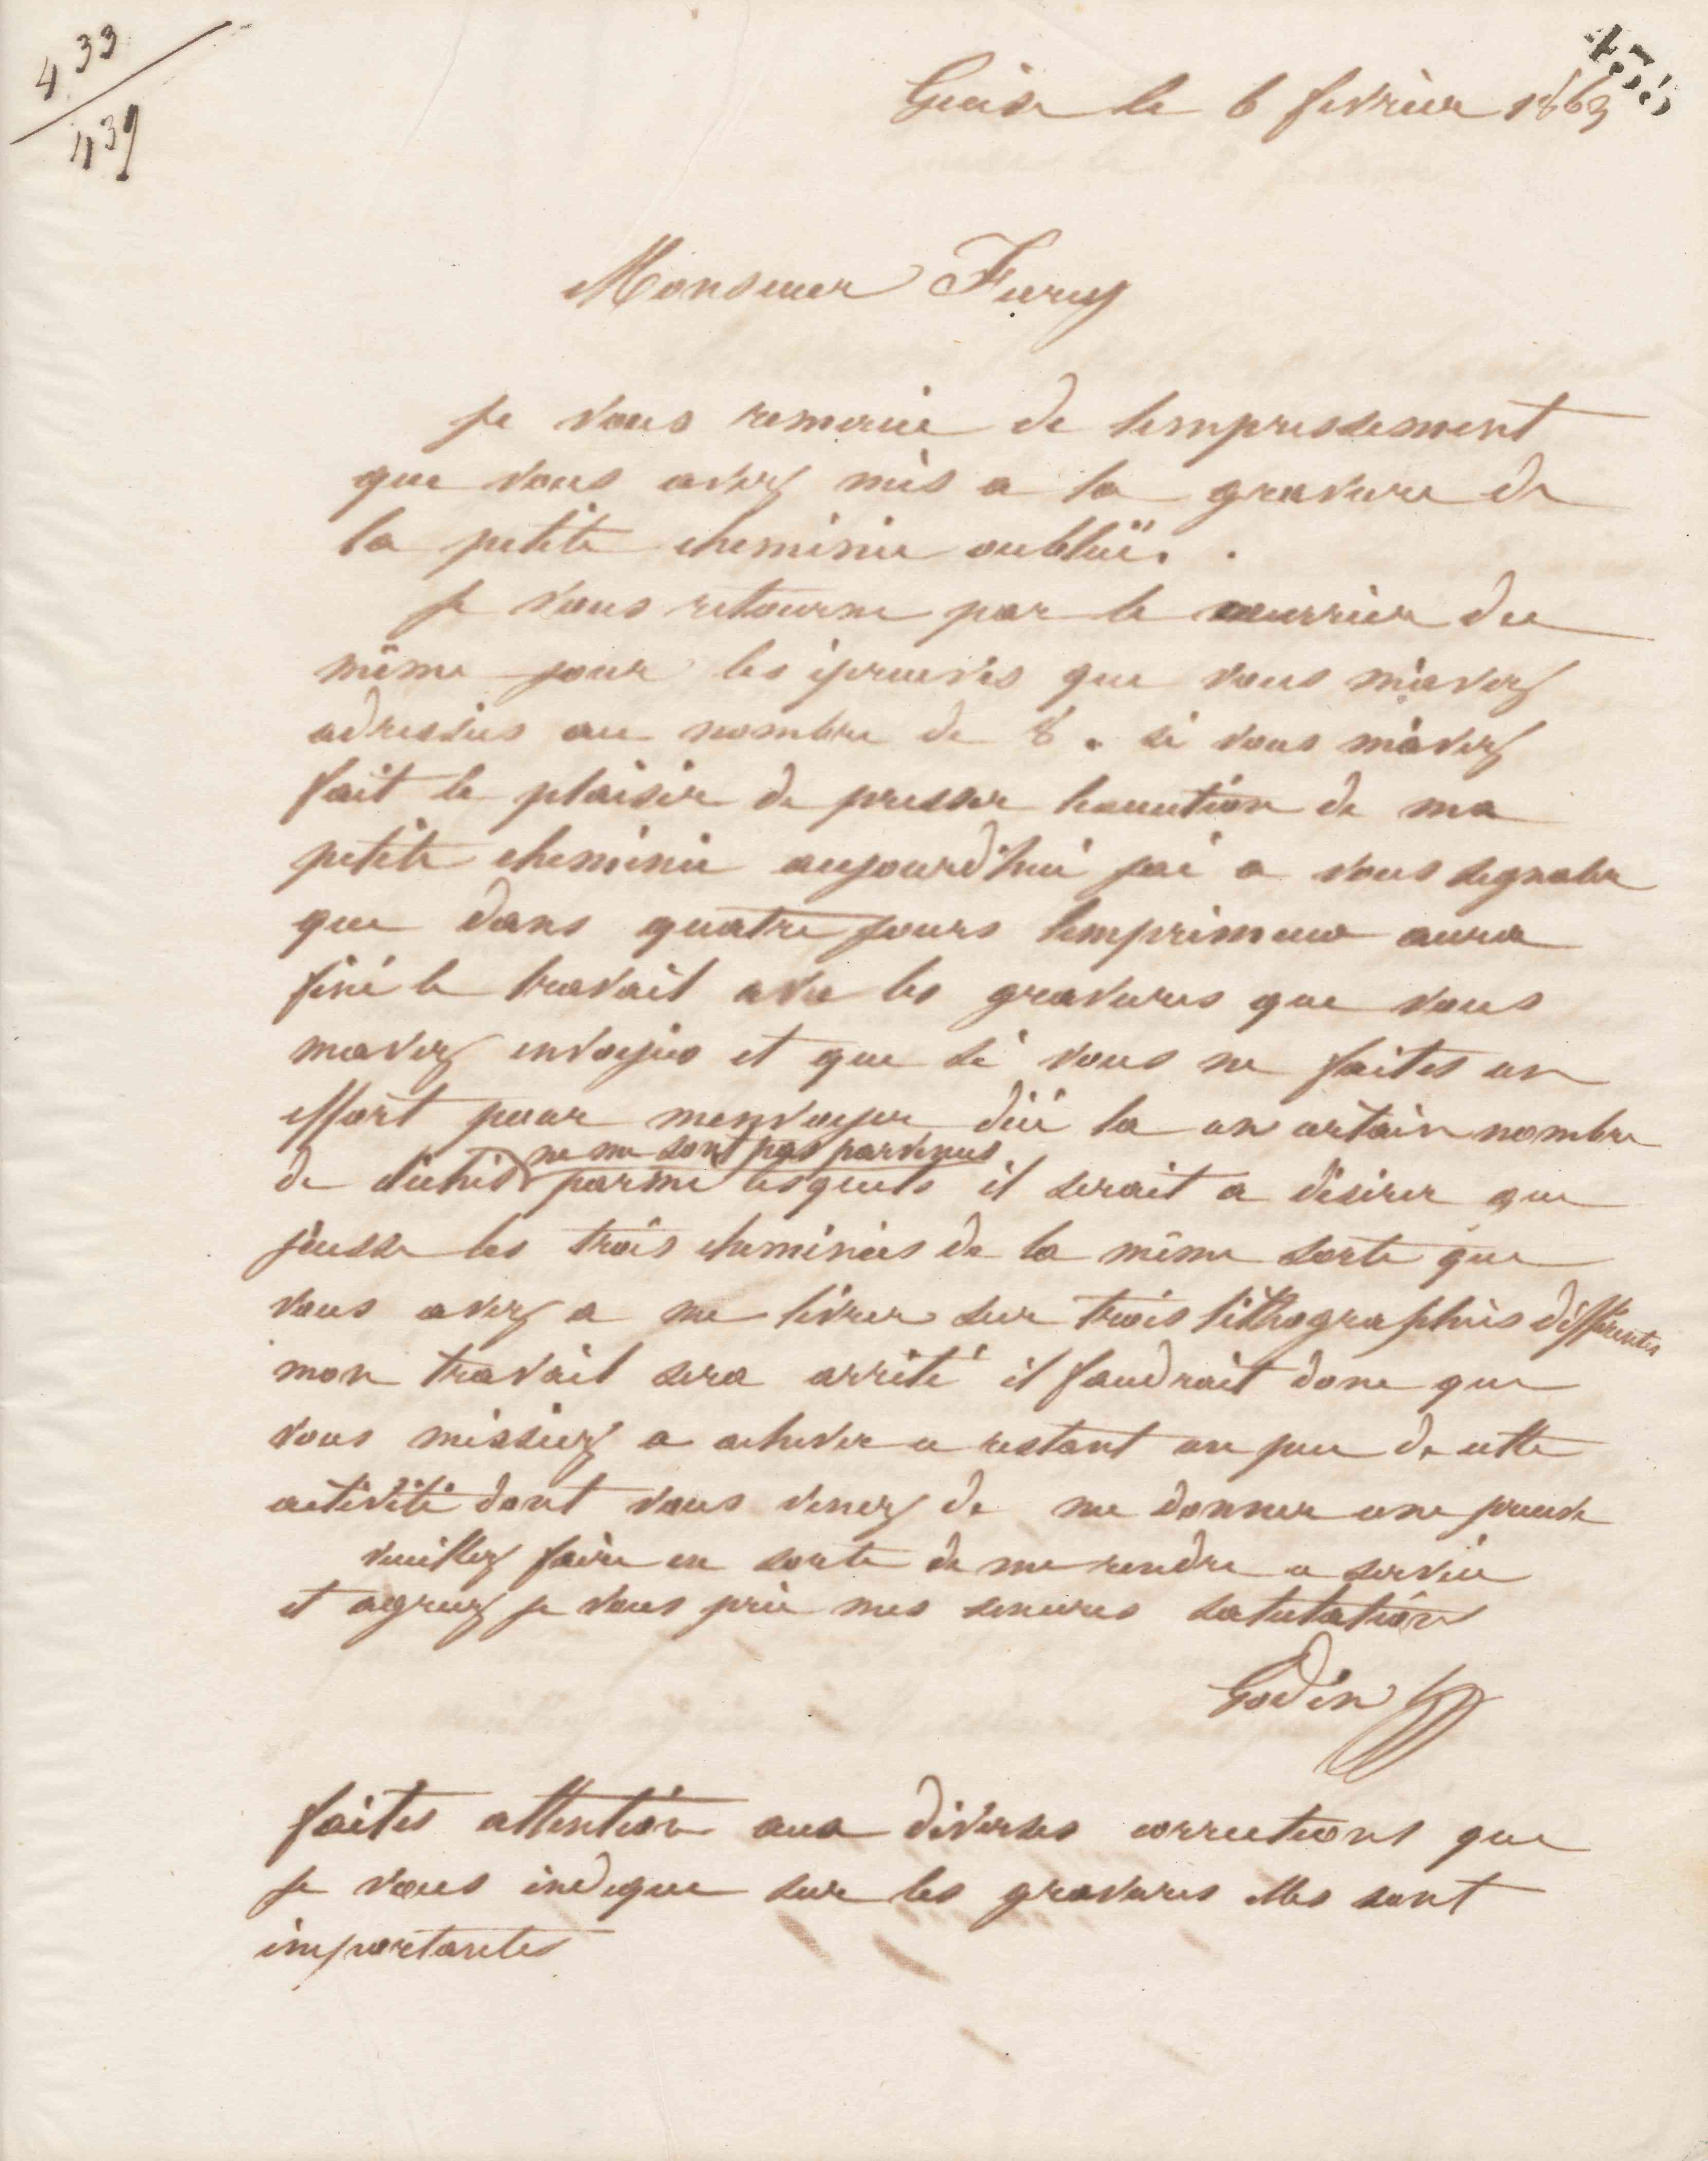 433
439
435
Guise le 6 fevrier 1863
Monsieur Fury
je vous remercie de lempressement
que vous avez mis a la gravure de
la petite cheminée oubliée.
je vous retourne par le courrier du
même jour les épreuves que vous m'avez
adressées au nombre de 8. si vous m'avez
fait le plaisir de presser l'exécution de ma
petite cheminée aujourd'hui jai a vous signaler
que dans quatre jours limprimeur aura
fini le travail avec les gravures que vous
mavez envoyées et que si vous ne faites un
effort pour menvoyer dici la un certain nombre
ne me sont pas parvenus
de clichés parmi lesquels il serait a désirer que
j'eusse les trois cheminées de la même sorte que
vous avez a me livrer sur trois lithographies différentes
mon travail sera arrêté il faudrait donc que
vous missiez a achever ce restant un peu de cette
activité dont vous venez de me donner une preuve
veuillez faire en sorte de me rendre ce service
et agréez je vous prie mes sinceres salutations
Godin
faites attention aux diverses corrections que
je vous indique sur les gravures elles sont
importantes